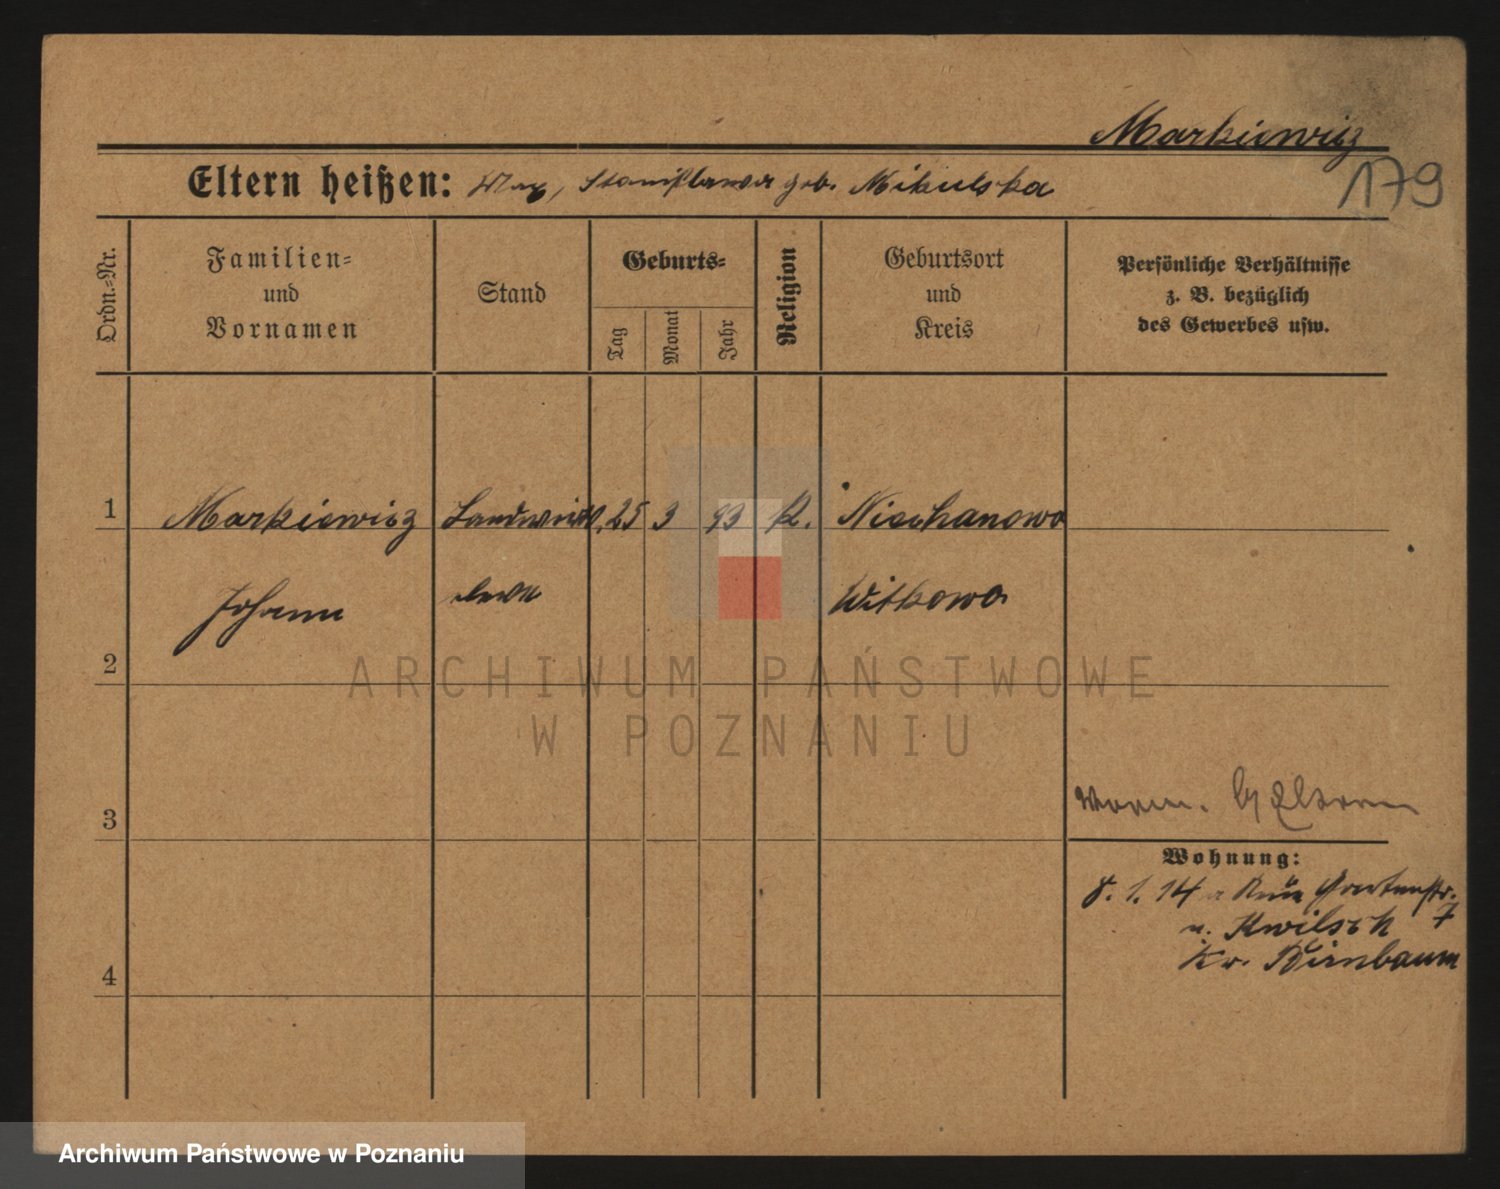 Markiewicz
179
Eltern heißen: Max, Stanislawa geb. Mikulska
Ordn.-Nr.
Familien-
und
Vornamen
Stand
Geburts-
Tag
Monat
Jahr
Religion
Geburtsort
und
Kreis
Persönliche Verhältnisse
z. B. bezüglich
des Gewerbes usw.
1
Markiewicz
Landwirt
25
3
93
k.
Niechanowo
Johann
Witkowo
2
ARCHIWUM PAŃSTWOWE
W POZNANIU
3
Eltern
Wohnung:
8. 1. 14 Gartenstr. 7
n. Kwilsch
Kr. Birnbaum
4
Archiwum Państwowe w Poznaniu